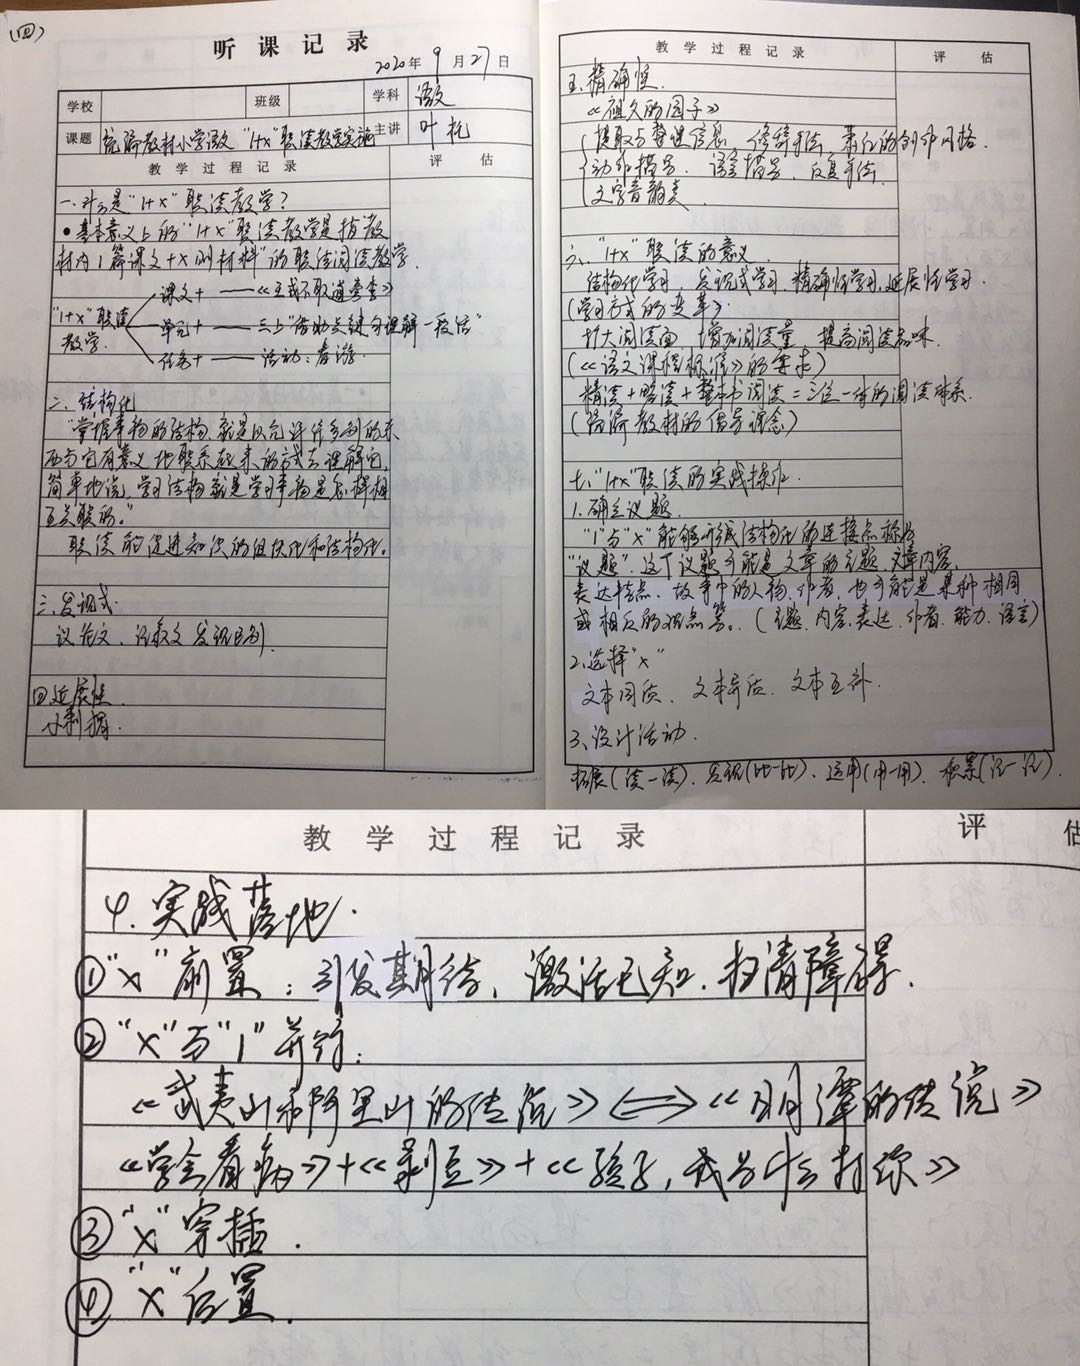 (四)
听课记录
2020年9月27日
学校 班级 学科 语文
课题 统编教材小学语文"1+x"联读教学实施 主讲
教学过程记录 评估
一、什么是"1+x"联读教学?
•基本意义上的"1+x"联读教学是指"教
材内1篇课文+x则材料"的联结阅读教学.
课文+ ——《王戎不取道旁李》
"1+x"联读 单元+ ——三上"借助关键句理解一段话"
教学. 任务+ ——活动:春游.
二、结构化
"掌握事物的结构,就是以允许许多别的东
西与它有意义地联系起来的方式去理解它,
简单地说,学习结构就是学习事物是怎样相
互关联的。"
联读能促进知识的组块化和结构化。
三、发现式.
议论文、记叙文 发现区别
四延展性.
教学过程记录 评估
五、精确性.
《祖父的园子》
提取与整理信息、修辞手法、萧红的创作风格.
动作描写、语言描写、反复手法.
文字音韵美
六、"1+x"联读的意义
结构化学习、发现式学习、精确性学习、延展性学习.
(学习方式的变革)
扩大阅读面、增加阅读量、提高阅读品味.
(《语文课程标准》的要求)
精读+略读+整本书阅读=三位一体的阅读体系.
(统编教材的倡导理念)
七、"1+x"联读的实践操作.
1.确立议题.
"1"与"x"能够形成结构化的连接点称为
"议题".这个议题可能是文章的主题、文章内容、
表达特点、故事中的人物、作者、也可能是某种相同
或相反的观点等。(主题、内容、表达、作者、能力、语言)
2.选择"x"
文本同质、文本异质、文本互补.
3、设计活动.
拓展(读一读)、发现(比一比)、运用(用一用)、积累(记一记).
教学过程记录 评估
4.实践落地.
①"x"前置:引发期待、激活已知、扫清障碍.
②"x"与"1"并行:
《武夷山和阿里山的传说》⟺《日月潭的传说》
《学会看病》+《剥豆》+《孩子,我为什么打你》
③"x"穿插.
④"x"后置.